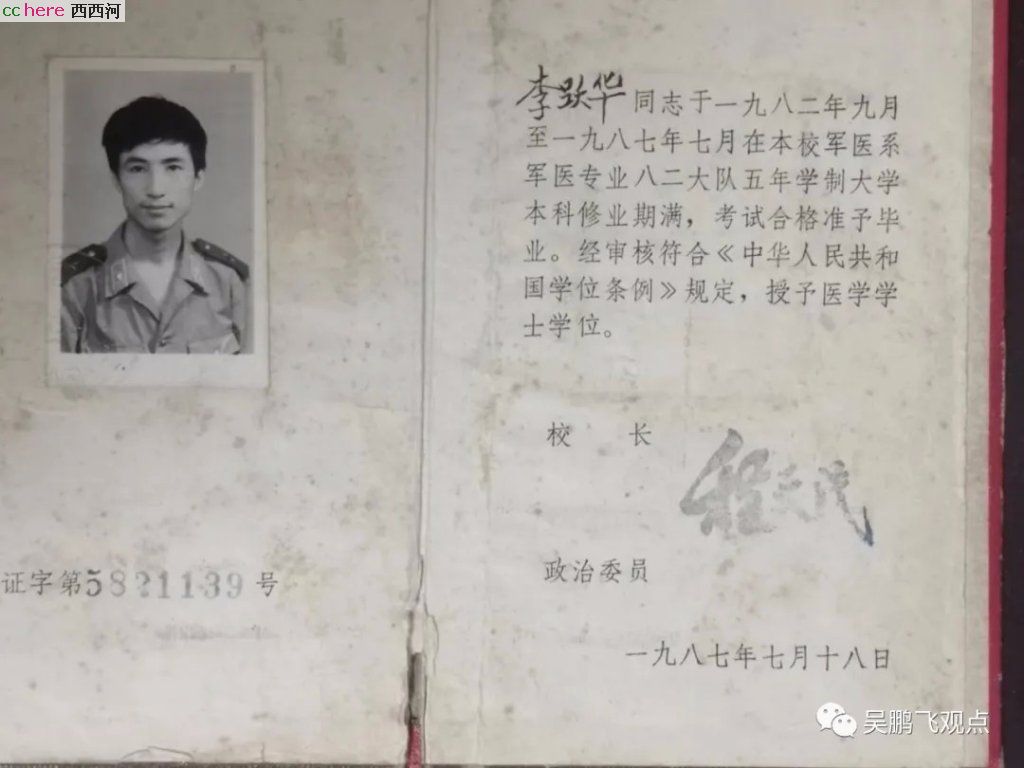 cchere 西西河
李跃华同志于一九八二年九月
至一九八七年七月在本校军医系
军医专业八二大队五年学制大学
本科修业期满，考试合格准予毕
业。经审核符合《中华人民共和
国学位条例》规定，授予医学学
士学位。
校 长
程天民
政治委员
一九八七年七月十八日
证字第5821139号
吴鹏飞观点